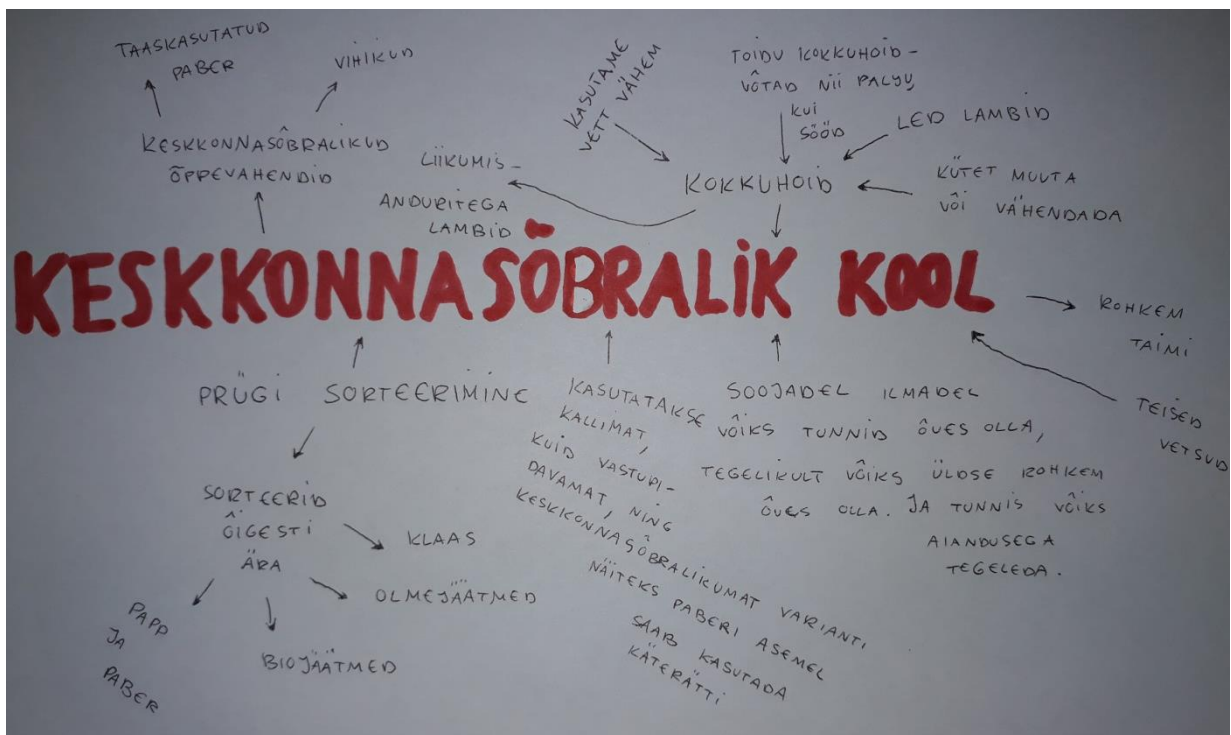 TAASKASUTATUD
PABER
VIHIKUD
KESKKONNASÕBRALIKUD
ÕPPEVAHENDID
KASUTAME
VETT VÄHEM
TOIDU KOKKUHOID –
VÕTAD NII PALJU,
KUI
SÖÖD
LED LAMBID
KOKKUHOID
KÜTET MUUTA
VÕI VÄHENDADA
LIIKUMIS-
ANDURITEGA
LAMBID
KESKKONNASÕBRALIK KOOL
ROHKEM
TAIMI
TEISED
VETSUD
PRÜGI SORTEERIMINE
SORTEERID
ÕIGESTI
ÄRA
KLAAS
OLMEJÄÄTMED
BIOJÄÄTMED
PAPP
JA
PABER
KASUTATAKSE
KALLIMAT,
KUID VASTUPI-
DAVAMAT, NING
KESKKONNASÕBRALIKUMAT VARIANTI.
NÄITEKS PABERI ASEMEL
SAAB KASUTADA
KÄTERÄTTI
SOOJADEL ILMADEL
VÕIKS TUNNID ÕUES OLLA,
TEGELIKULT VÕIKS ÜLDSE ROHKEM
ÕUES OLLA. JA TUNNIS VÕIKS
AIANDUSEGA
TEGELEDA.